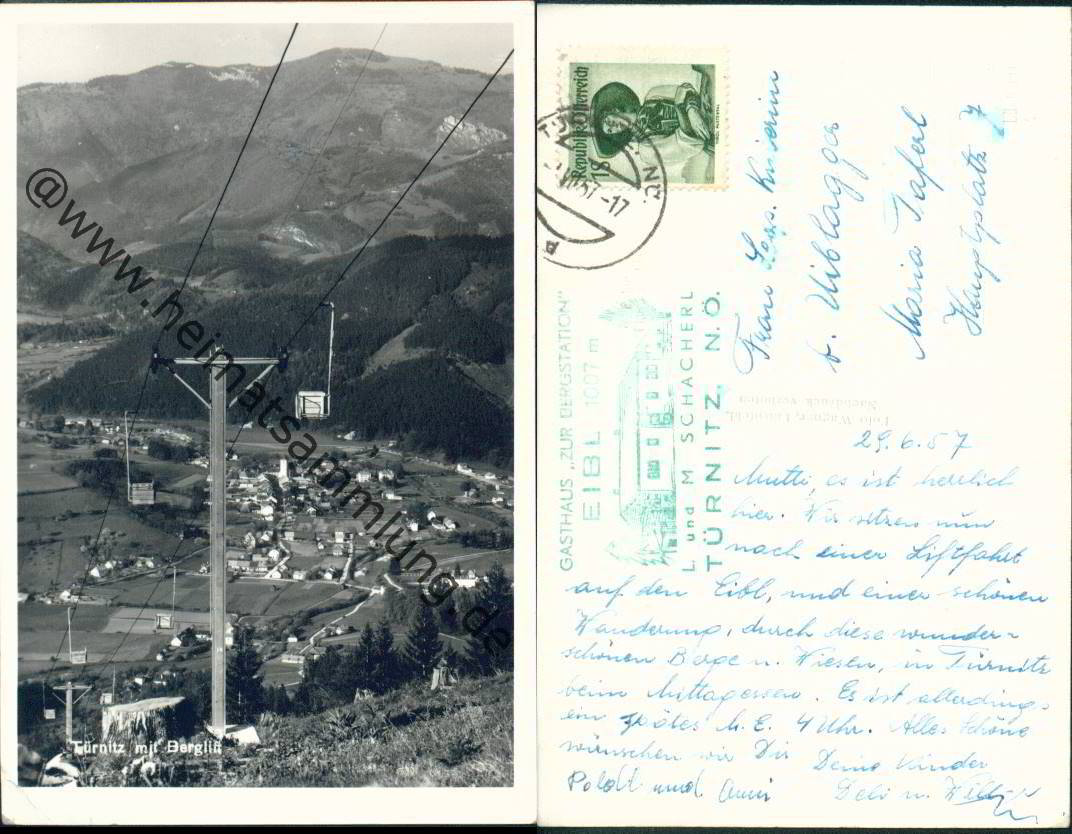 @www.heimatsammlung.de
Türnitz mit Berglift
Republik Österreich
18
57-17
GASTHAUS „ZUR BERGSTATION"
EIBL 1007 m
L und M SCHACHERL
TÜRNITZ, N.Ö.
Frau
b.
Maria Taferl
Hauptplatz 7
Foto Wagner, Lilienfeld,
Nachdruck verboten
29.6.57
Mutti, es ist herrlich
hier. Wir sitzen nun
nach einer Liftfahrt
auf den Eibl, und einer schönen
Wanderung, durch diese wunder-
schönen Berge u. Wiesen, in Türnitz
beim Mittagessen. Es ist allerdings
ein spätes M.E. 4 Uhr. Alles Schöne
wünschen wir Dir Deine Kinder
Poldt und Anni u.